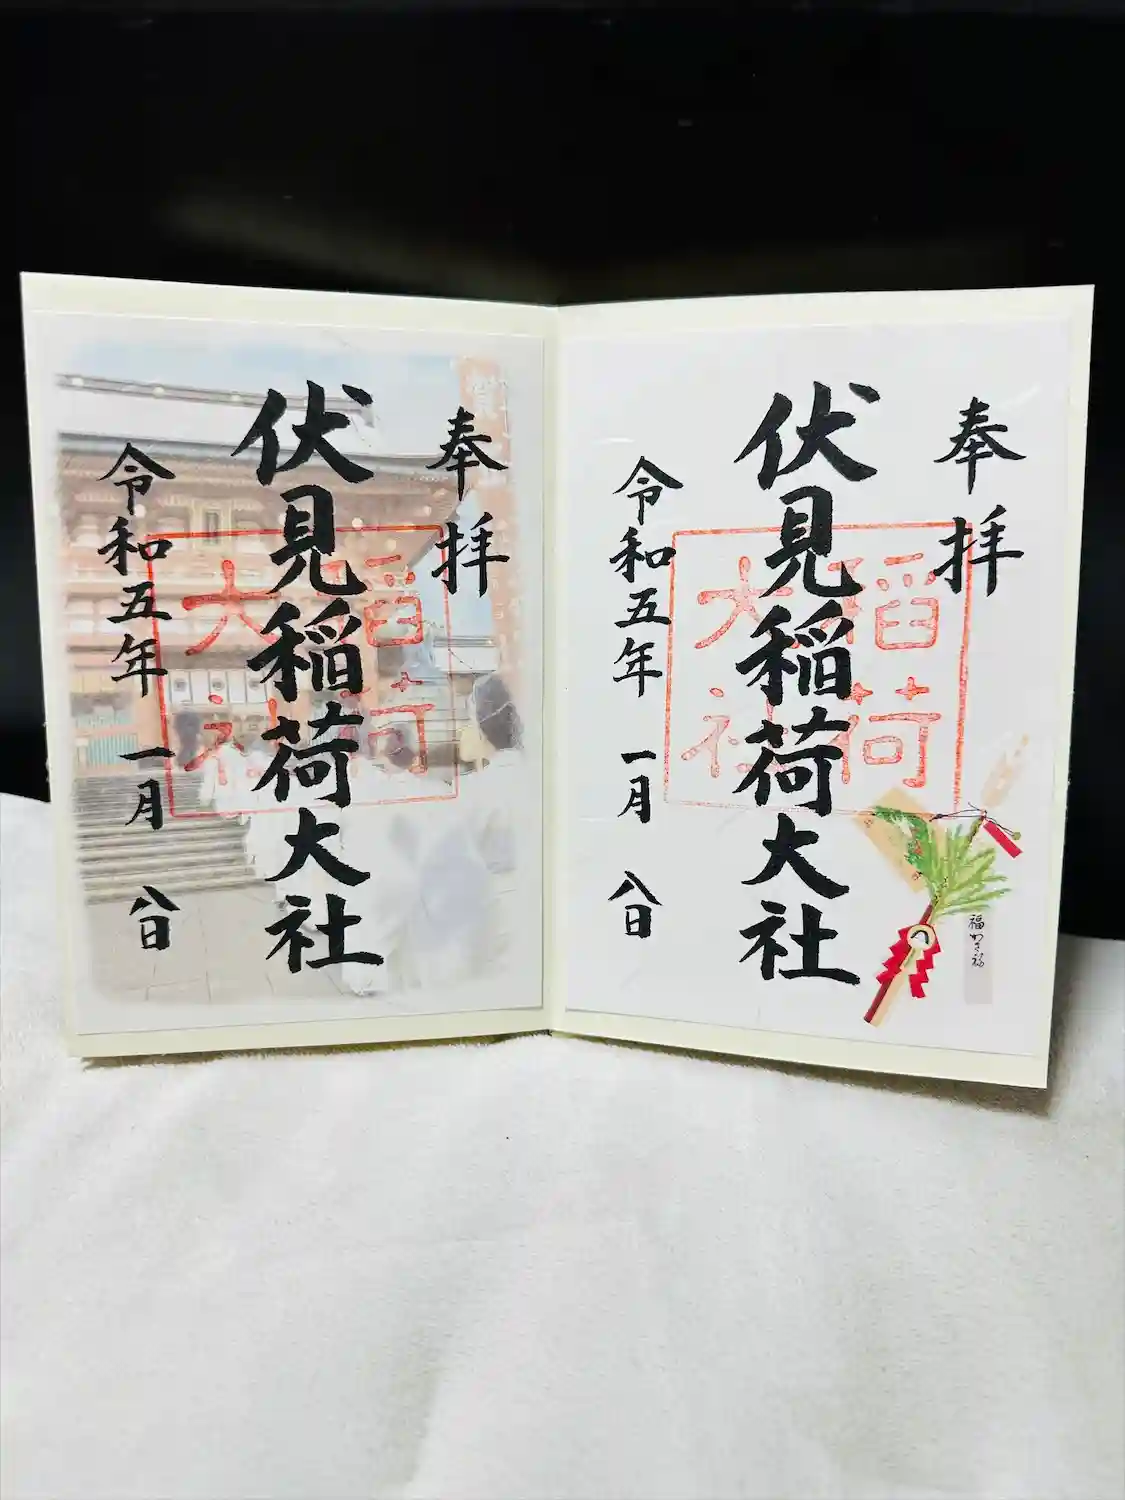 奉拝
伏見稲荷大社
令和五年 一月 八日
稲荷
大社
奉拝
伏見稲荷大社
令和五年 一月 八日
稲荷
大社